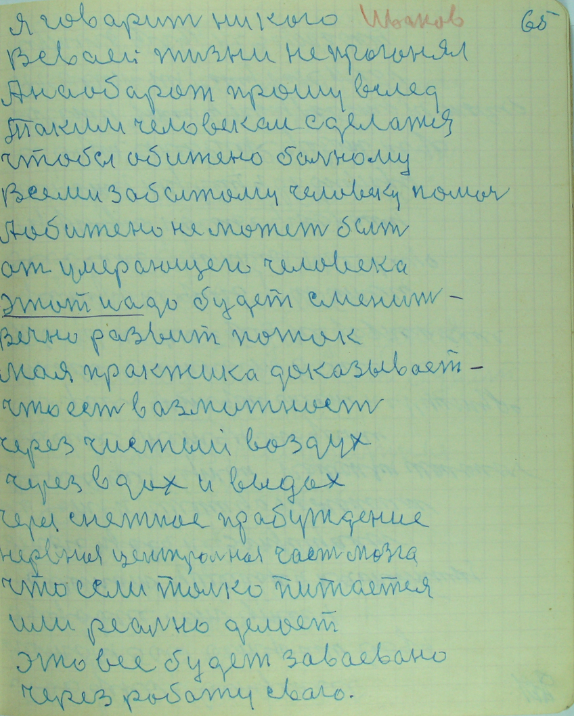 я говарит никого Иванов 65
Всваеи жизни непрогонял
Анаобарот прошу вслед
Таким человекам сделатся
чтобы обижено болному
Всеми забытому человеку помоч
Аобижено не может быт
от умерающего человека
этот надо будет сменит –
Вечно развит поток
мая практика доказывает –
что ест вазможност
через чистыи воздух
через вдох и выдох
через снежное прабуждение
нервная центролная част мозга
что если толко питается
или реално делает
это все будет заваевано
через работу сваго.